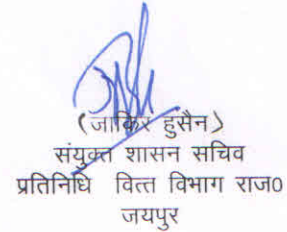 (जाकिर हुसैन)
संयुक्त शासन सचिव
प्रतिनिधि वित्त विभाग राज0
जयपुर